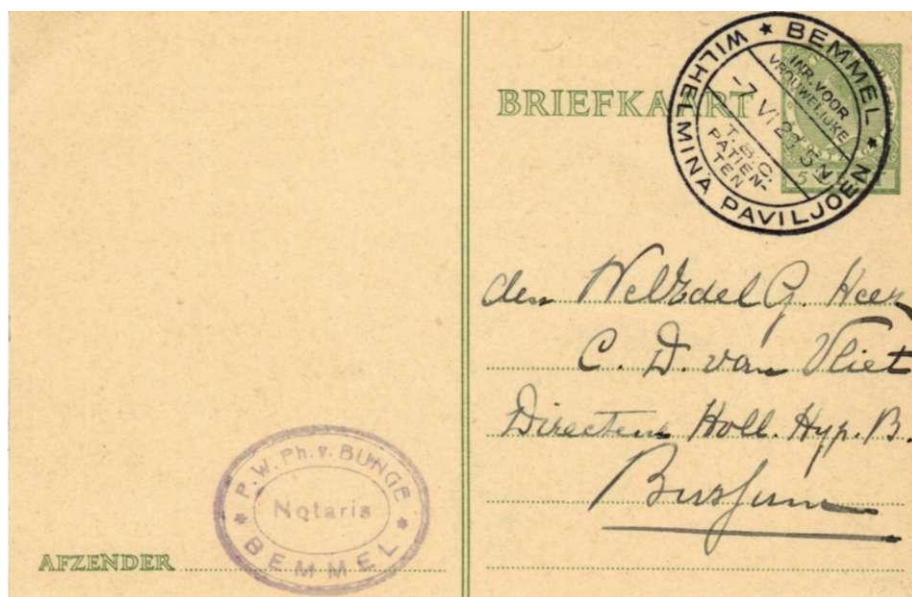 BRIEFKAART
WILHELMINA PAVILJOEN * BEMMEL *
INR. VOOR
VROUWELIJKE
-7 VI 2
5N
T.B.C.
PATIËN-
TEN
5
den WelEdel G. Heer
C. D. van Vliet
Directeur Holl. Hyp. B.
Bussum
P. W. Ph. v. BUNGE
Notaris
* BEMMEL *
AFZENDER